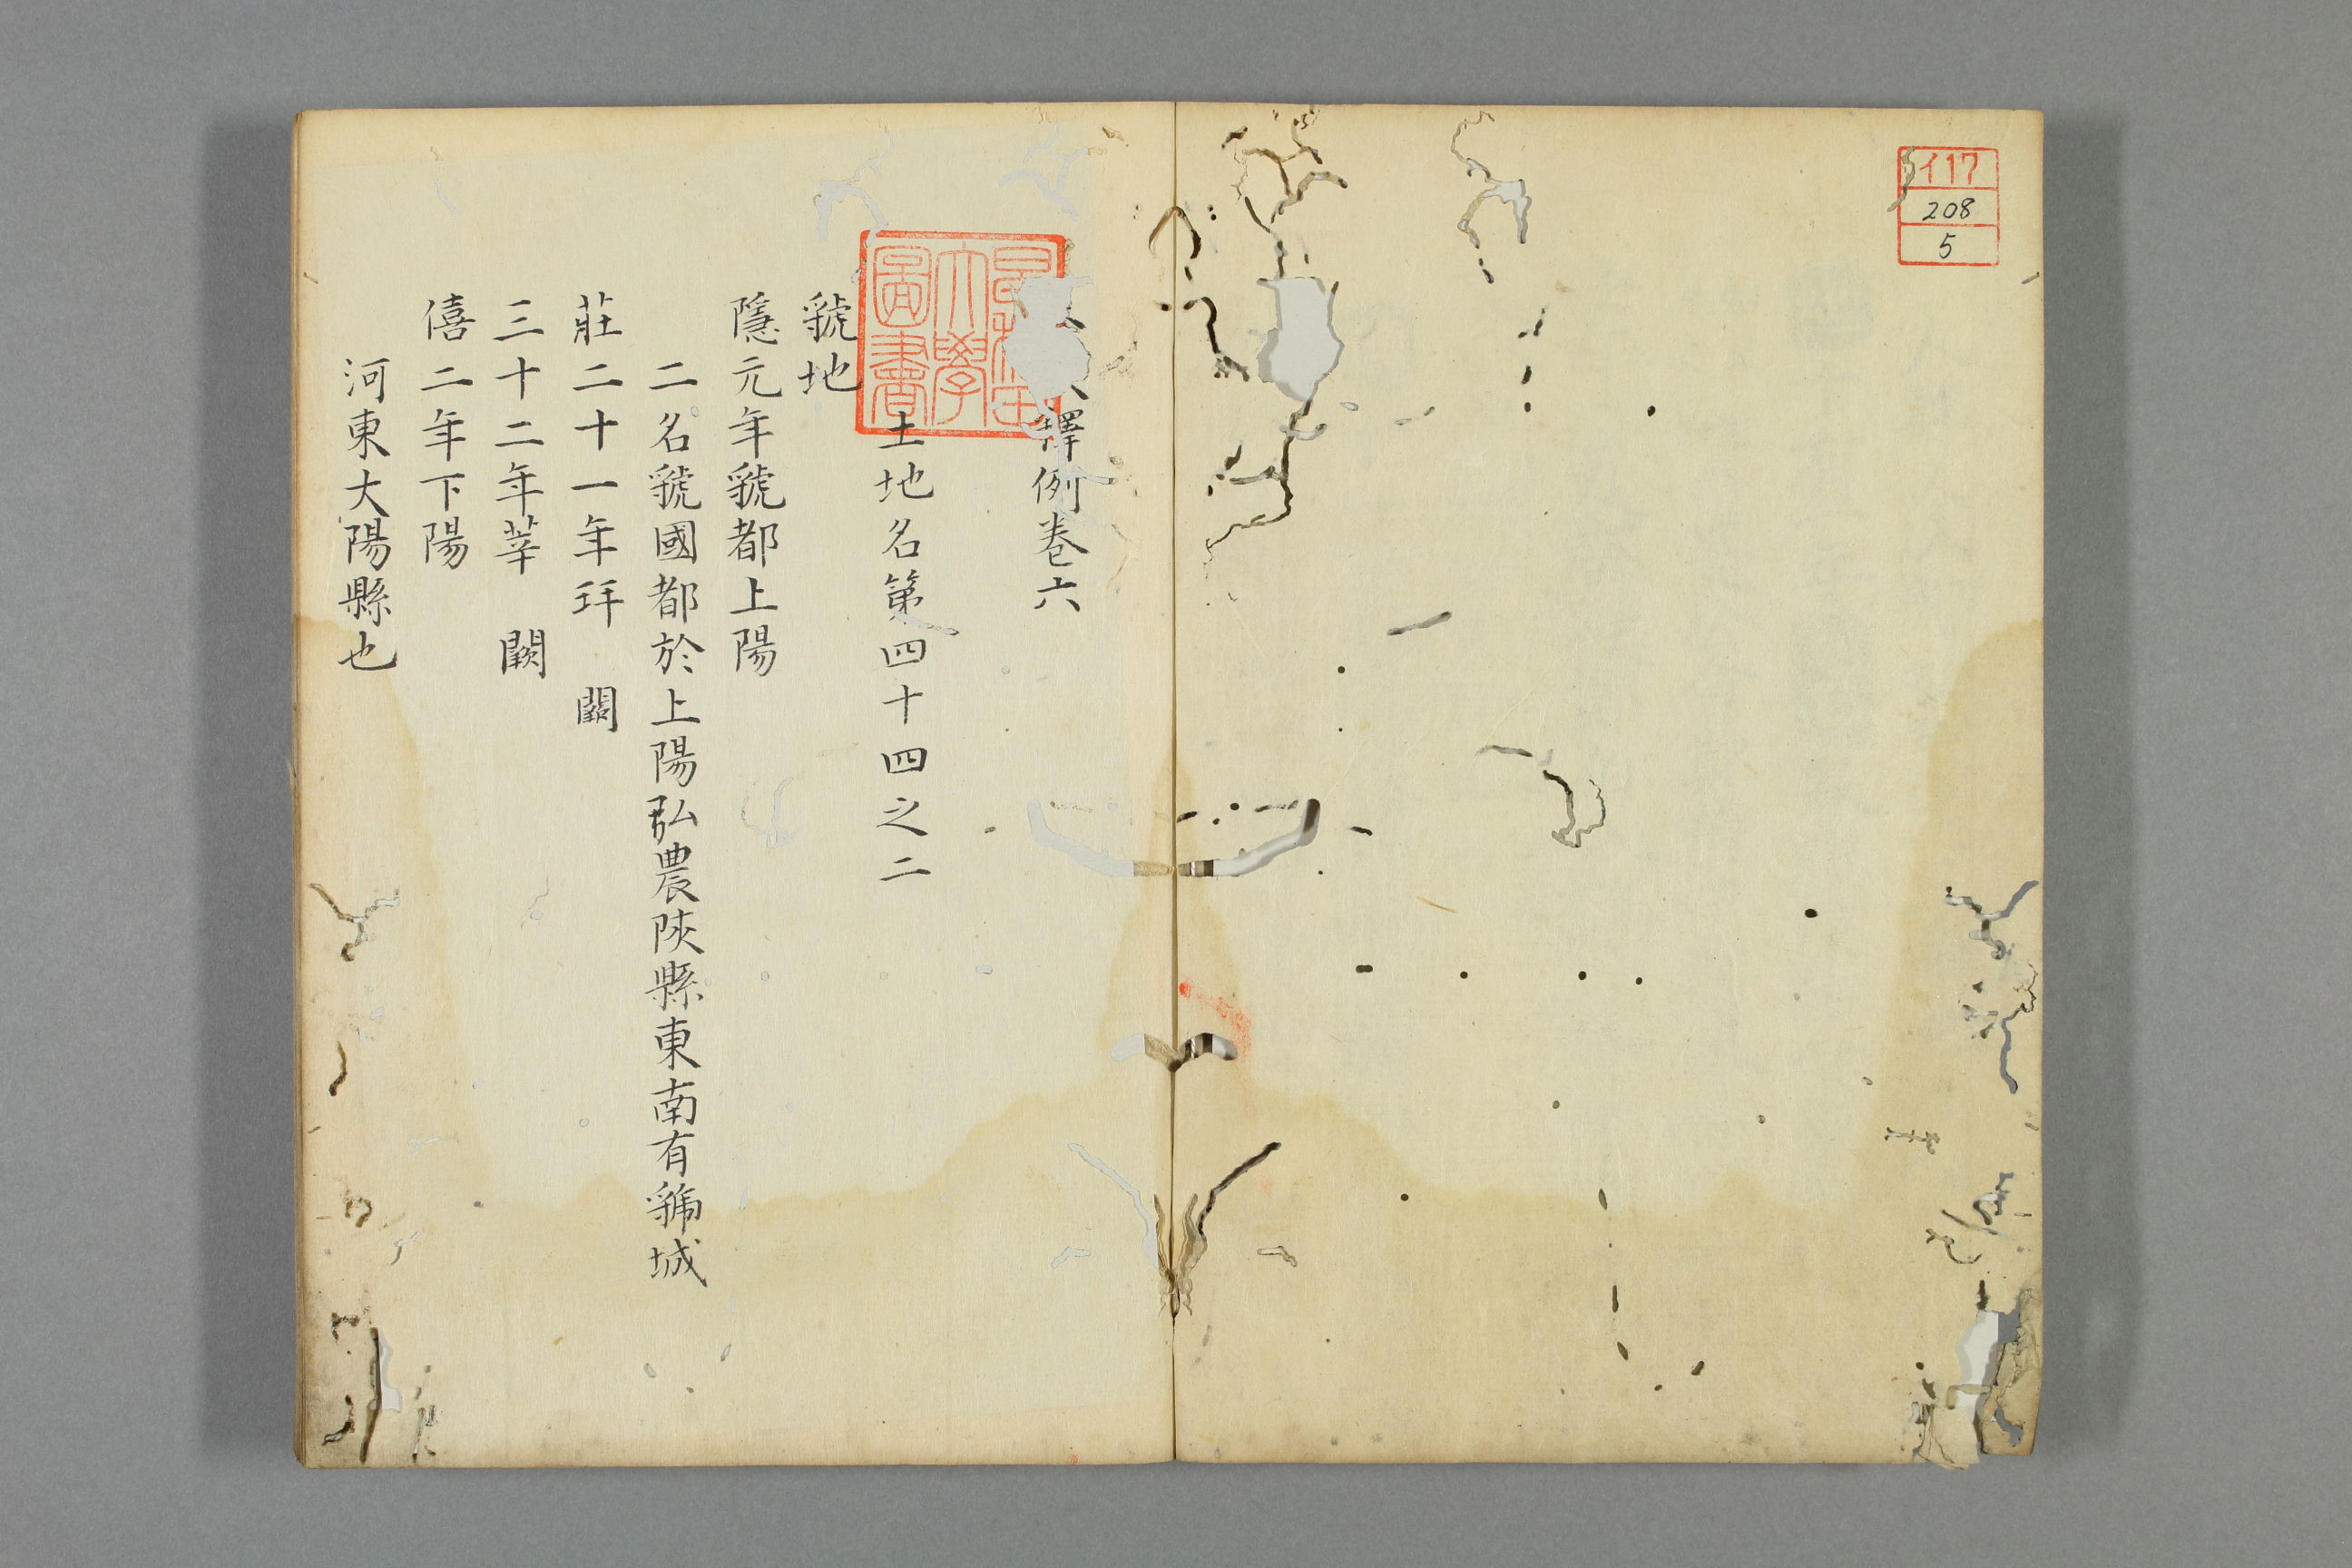 イ17
208
5
釋例卷六
土地名第四十四之二
虢地
隱元年虢都上陽
二名虢國都於上陽弘農陝縣東南有虢城
莊二十一年玤 闕
三十二年莘 闕
僖二年下陽
河東大陽縣也
大學
圖書